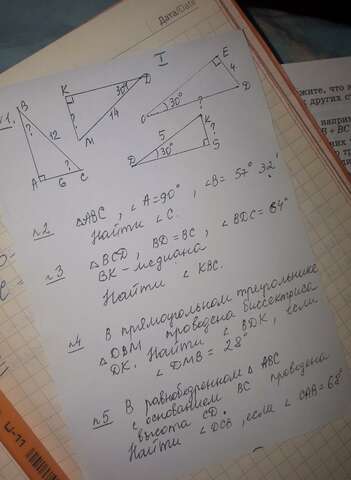 Дата/Date
I
N1.
B
?
12
?
A
6
C
K
30°
D
?
14
M
E
4
?
30°
O
D
K
5
?
30°
D
S
N2 △ABC, ∠A=90°, ∠B=57°32'.
Найти ∠C.
N3 △BCD, BD=BC, ∠BDC=64°
BK – медиана
Найти ∠KBC.
N4 В прямоугольном треугольнике
△DBM проведена биссектриса
DK. Найти ∠BDK, если
∠DMB = 28°
N5 В равнобедренном △ABC
с основанием BC проведена
высота CD.
Найти ∠DCB, если ∠CAB=68°
жите, что
других
напри
H + BC